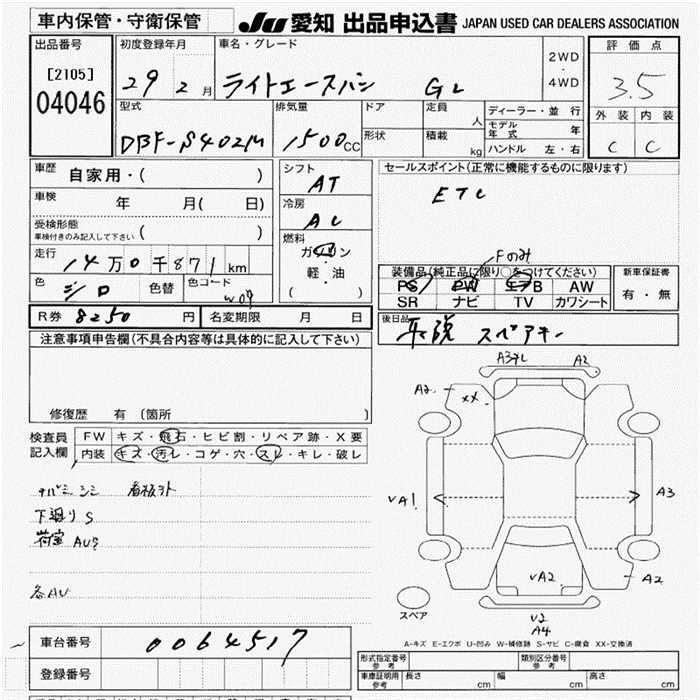 車内保管・守衛保管
JU 愛知 出品申込書 JAPAN USED CAR DEALERS ASSOCIATION
出品番号 初度登録年月 車名・グレード 評価点
[2105]
04046
29 2月 ライトエースバン GL
2WD
・
4WD
3.5
型式 排気量 ドア 定員 人 ディーラー・並行
モデル年式 年
形状 積載 kg ハンドル 左・右
DBF-S402M 1500cc
外装 内装
C C
車歴 自家用・( )
シフト AT
セールスポイント(正常に機能するものに限ります)
ETC
車検 年 月( 日)
冷房 AC
受検形態
車検付きのみ記入して下さい ( )
燃料 ガソリン
・
軽・油
( )
走行 14万0千871km
Fのみ
色 シロ 色替 色コード W09
装備品(純正品に限り○をつけてください)
PS PW エアB AW
SR ナビ TV カワシート
新車保証書
有・無
R券 8250円 名変期限 月 日
後日品 取説 スペアキー
注意事項申告欄(不具合内容等は具体的に記入して下さい)
修復歴 有 〔箇所 〕
検査員記入欄
FW キズ・飛石・ヒビ割・リペア跡・X要
内装 キズ・汚レ・コゲ・穴・スレ・キレ・破レ
下廻り S
荷室 AU
各AU
A2
A2
XX
A3
A2
A1
A2
A2
A4
スペア
A-キズ E-エクボ U-凹み W-補修跡 S-サビ C-腐食 XX-交換済
車台番号 0064517
登録番号
形式指定番号
参考
類別区分番号
参考
車庫証明用
参考
長さ cm 幅 cm 高さ cm